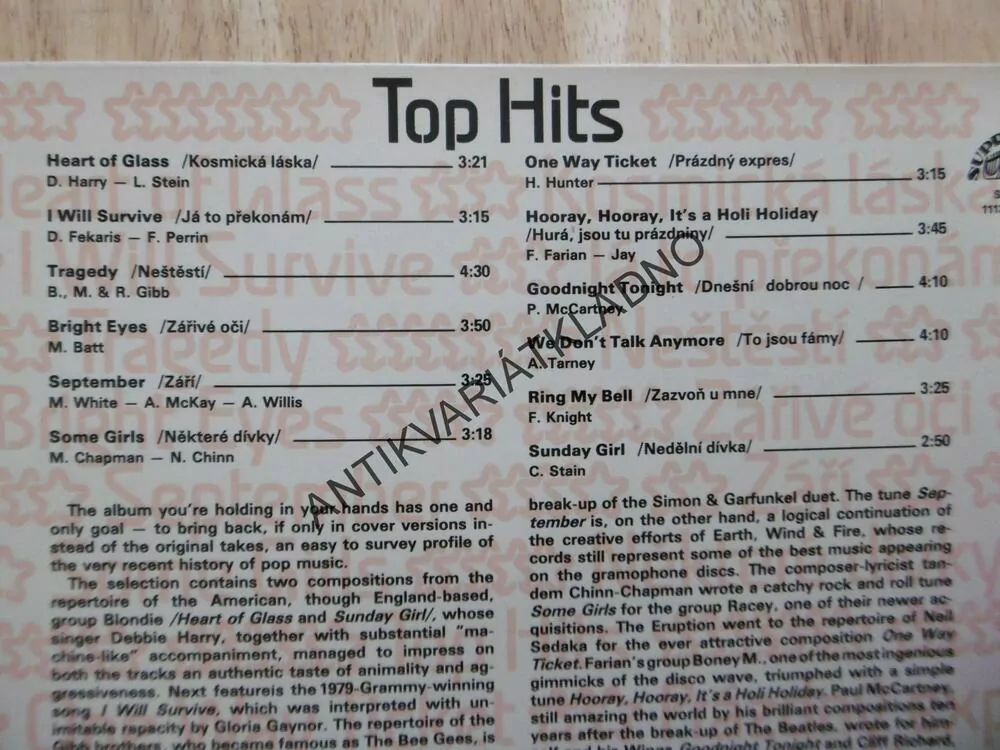 Top Hits
Heart of Glass /Kosmická láska/ 3:21
D. Harry — L. Stein
I Will Survive /Já to překonám/ 3:15
D. Fekaris — F. Perrin
Tragedy /Neštěstí/ 4:30
B., M. & R. Gibb
Bright Eyes /Zářivé oči/ 3:50
M. Batt
September /Září/ 3:25
M. White — A. McKay — A. Willis
Some Girls /Některé dívky/ 3:18
M. Chapman — N. Chinn
One Way Ticket /Prázdný expres/
H. Hunter 3:15
Hooray, Hooray, It's a Holi Holiday
/Hurá, jsou tu prázdniny/ 3:45
F. Farian — Jay
Goodnight Tonight /Dnešní dobrou noc / 4:10
P. McCartney
We Don't Talk Anymore /To jsou fámy/ 4:10
A. Tarney
Ring My Bell /Zazvoň u mne/ 3:25
F. Knight
Sunday Girl /Nedělní dívka/ 2:50
C. Stain
The album you're holding in your hands has one and
only goal — to bring back, if only in cover versions in-
stead of the original takes, an easy to survey profile of
the very recent history of pop music.
The selection contains two compositions from the
repertoire of the American, though England-based,
group Blondie /Heart of Glass and Sunday Girl/, whose
singer Debbie Harry, together with substantial "ma-
chine-like" accompaniment, managed to impress on
both the tracks an authentic taste of animality and ag-
gressiveness. Next featureis the 1979-Grammy-winning
song I Will Survive, which was interpreted with un-
imitable rapacity by Gloria Gaynor. The repertoire of the
Gibb brothers, who became famous as The Bee Gees, is
break-up of the Simon & Garfunkel duet. The tune Sep-
tember is, on the other hand, a logical continuation of
the creative efforts of Earth, Wind & Fire, whose re-
cords still represent some of the best music appearing
on the gramophone discs. The composer-lyricist tan-
dem Chinn-Chapman wrote a catchy rock and roll tune
Some Girls for the group Racey, one of their newer ac-
quisitions. The Eruption went to the repertoire of Neil
Sedaka for the ever attractive composition One Way
Ticket. Farian's group Boney M., one of the most ingenious
gimmicks of the disco wave, triumphed with a simple
tune Hooray, Hooray, It's a Holi Holiday. Paul McCartney,
still amazing the world by his brilliant compositions ten
years after the break-up of The Beatles, wrote for him-
self and his Wings Goodnight Tonight and Cliff Richard,
ANTIKVARIÁTKLADNO